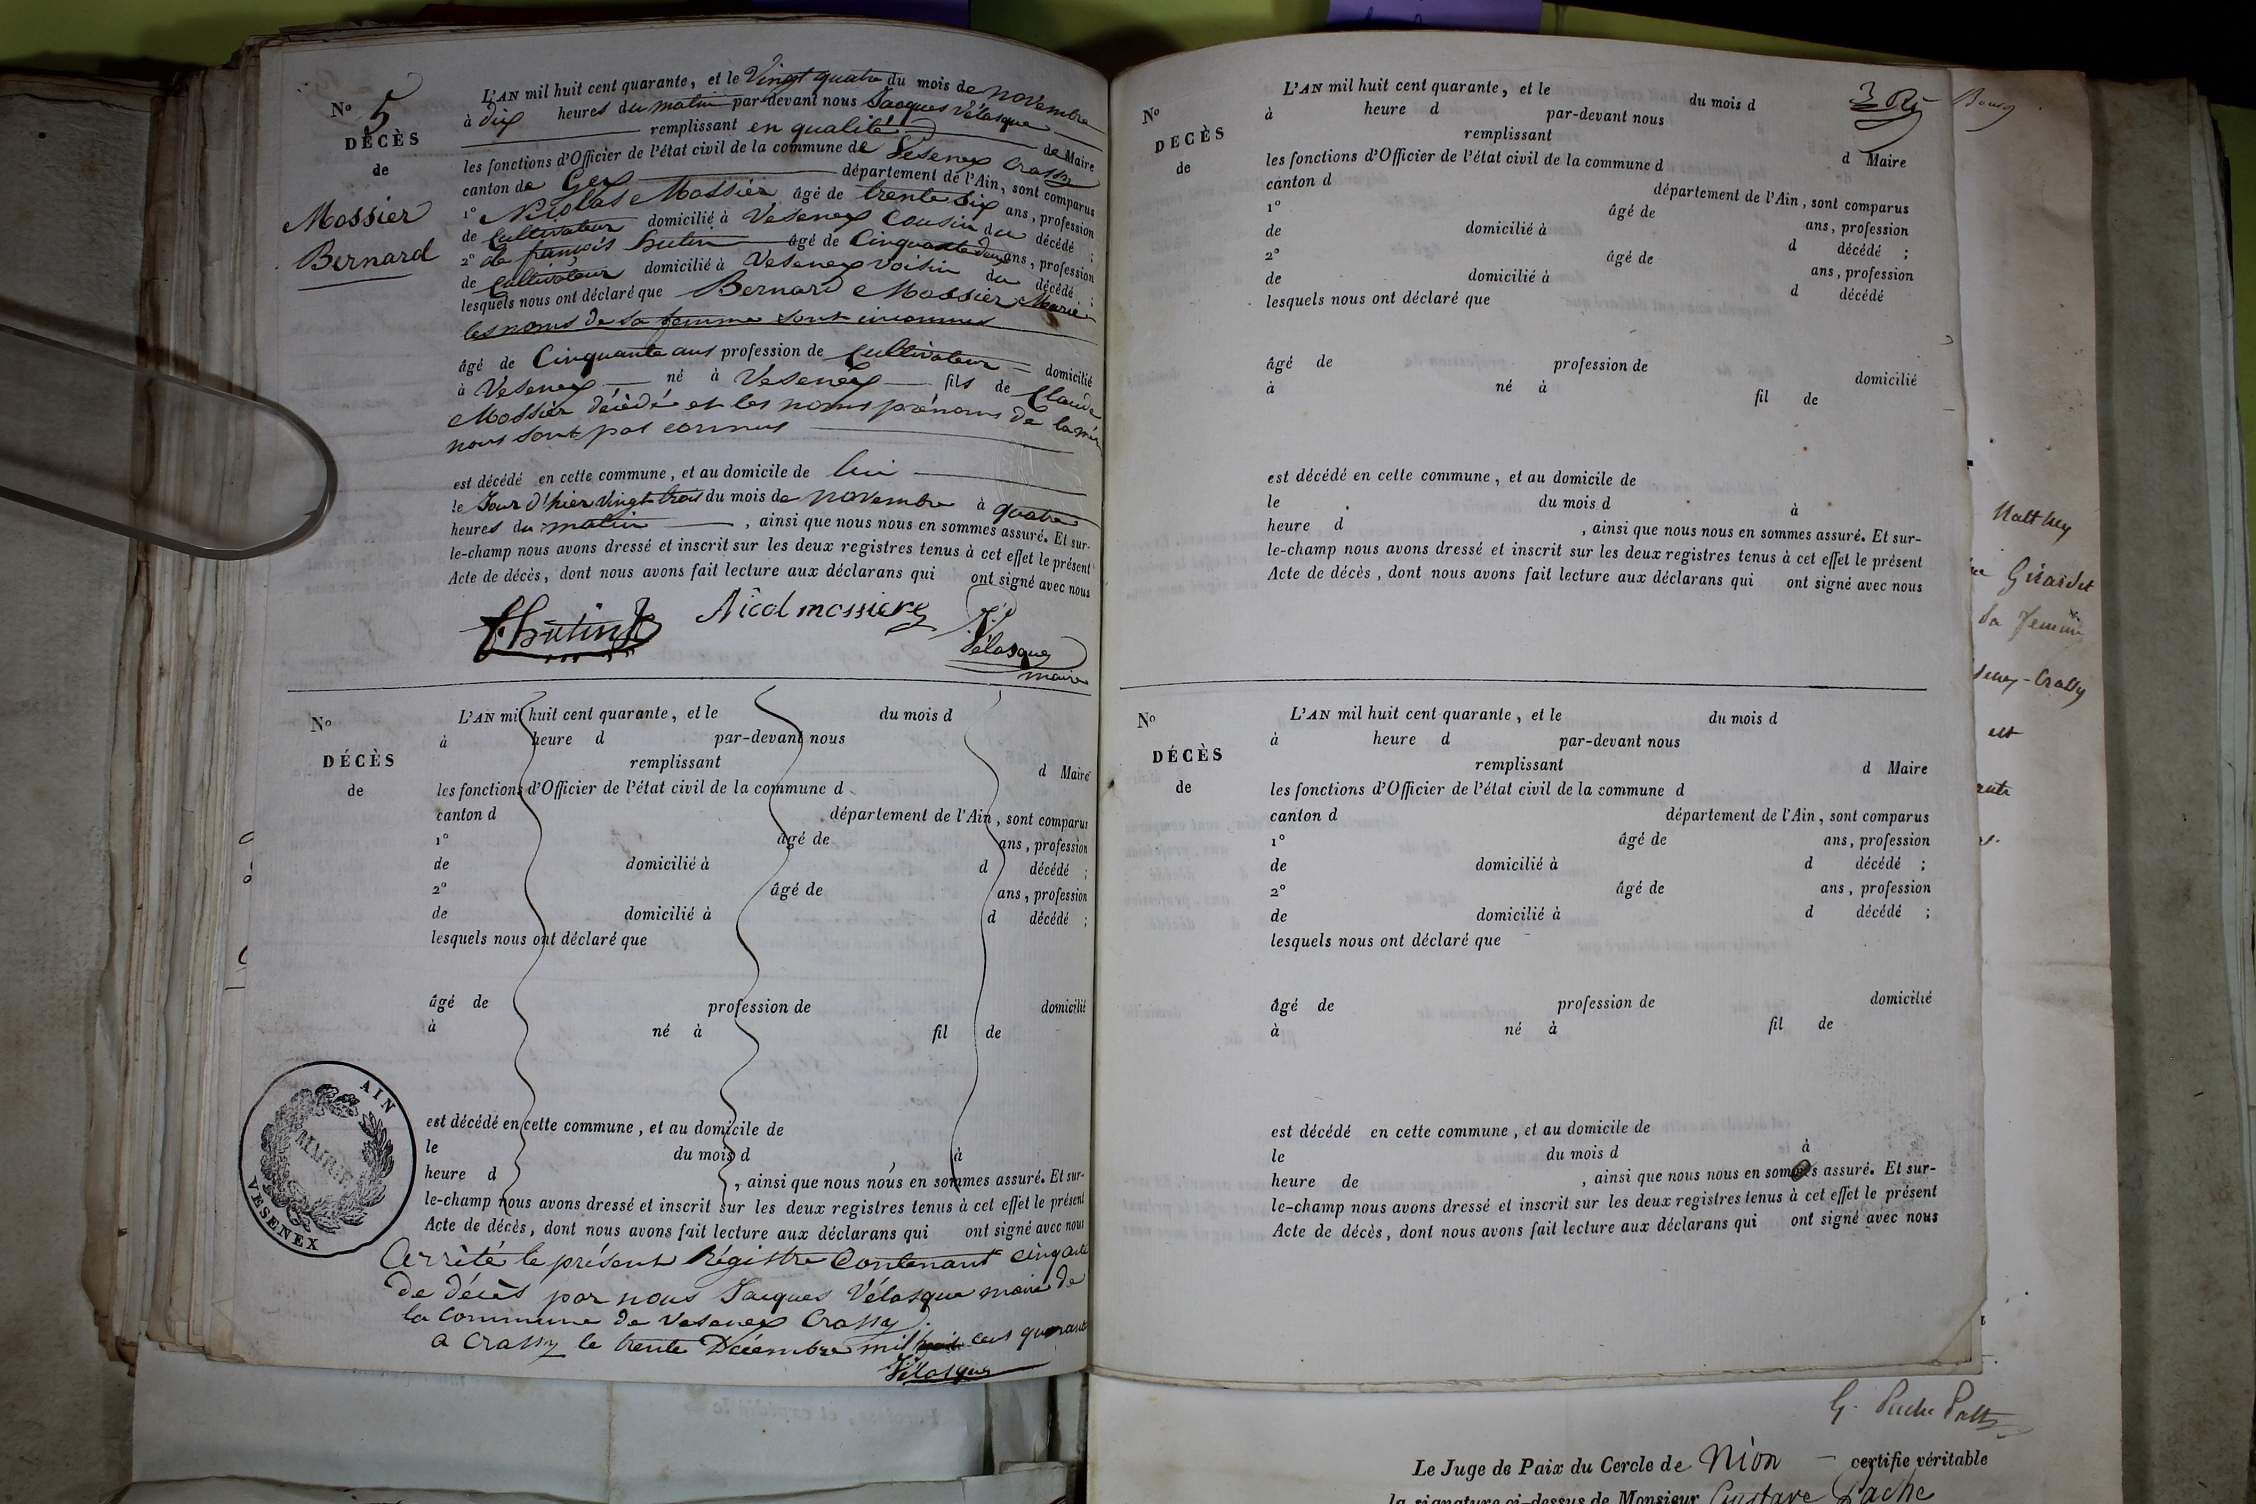 N° 5
DÉCÈS
de
Mossier
Bernard
L'AN mil huit cent quarante, et le Vingt quatre du mois de novembre
à dix heures du matin par-devant nous Jacques Vélasque
remplissant en qualité de Maire
les fonctions d'Officier de l'état civil de la commune de Vesenex Crassy
canton de Gex département de l'Ain, sont comparus
1° Nicolas Mossier âgé de trente six ans, profession
de Cultivateur domicilié à Vesenex Cousin du décédé ;
2° de françois hutin âgé de Cinquante deux ans, profession
de Cultivateur domicilié à Vesenex voisin du décédé ;
lesquels nous ont déclaré que Bernard Mossier Marié
les noms de sa femme sont inconnus
âgé de Cinquante ans profession de Cultivateur domicilié
à Vesenex né à Vesenex fils de Claude
Mossier décédé et les noms prénoms de la mère
nous sont pas connus
est décédé en cette commune, et au domicile de lui
le Jour d'hier vingt trois du mois de novembre à quatre
heures du matin , ainsi que nous nous en sommes assuré. Et sur-
le-champ nous avons dressé et inscrit sur les deux registres tenus à cet effet le présent
Acte de décès, dont nous avons fait lecture aux déclarans qui ont signé avec nous
f. hutin Nicol mossiere Vélasque
maire
N°
DÉCÈS
de
L'AN mil huit cent quarante, et le du mois d
à heure d par-devant nous
remplissant d Maire
les fonctions d'Officier de l'état civil de la commune d
canton d département de l'Ain, sont comparus
1° âgé de ans, profession
de domicilié à d décédé ;
2° âgé de ans, profession
de domicilié à d décédé ;
lesquels nous ont déclaré que
âgé de profession de domicilié
à né à fil de
est décédé en cette commune, et au domicile de
le du mois d à
heure d , ainsi que nous nous en sommes assuré. Et sur-
le-champ nous avons dressé et inscrit sur les deux registres tenus à cet effet le présent
Acte de décès, dont nous avons fait lecture aux déclarans qui ont signé avec nous
AIN
MAIRIE
VESENEX
Arrêté le présent Régistre Contenant cinq acte
de décès par nous Jacques Vélasque maire de
la Commune de Vesenex Crassy.
a Crassy le trente Décembre mil huit cent quarante
Vélasque
N°
DÉCÈS
de
L'AN mil huit cent quarante, et le du mois d
à heure d par-devant nous
remplissant d Maire
les fonctions d'Officier de l'état civil de la commune d
canton d département de l'Ain, sont comparus
1° âgé de ans, profession
de domicilié à d décédé ;
2° âgé de ans, profession
de domicilié à d décédé
lesquels nous ont déclaré que
âgé de profession de domicilié
à né à fil de
est décédé en cette commune, et au domicile de
le du mois d à
heure d , ainsi que nous nous en sommes assuré. Et sur-
le-champ nous avons dressé et inscrit sur les deux registres tenus à cet effet le présent
Acte de décès, dont nous avons fait lecture aux déclarans qui ont signé avec nous
N°
DÉCÈS
de
L'AN mil huit cent quarante, et le du mois d
à heure d par-devant nous
remplissant d Maire
les fonctions d'Officier de l'état civil de la commune d
canton d département de l'Ain, sont comparus
1° âgé de ans, profession
de domicilié à d décédé ;
2° âgé de ans, profession
de domicilié à d décédé ;
lesquels nous ont déclaré que
âgé de profession de domicilié
à né à fil de
est décédé en cette commune, et au domicile de
le du mois d à
heure de , ainsi que nous nous en sommes assuré. Et sur-
le-champ nous avons dressé et inscrit sur les deux registres tenus à cet effet le présent
Acte de décès, dont nous avons fait lecture aux déclarans qui ont signé avec nous
Matthey
Girardet
sa femme
Crassy
est
Le Juge de Paix du Cercle de Nion certifie véritable
la signature ci-dessus de Monsieur Gustave Pache